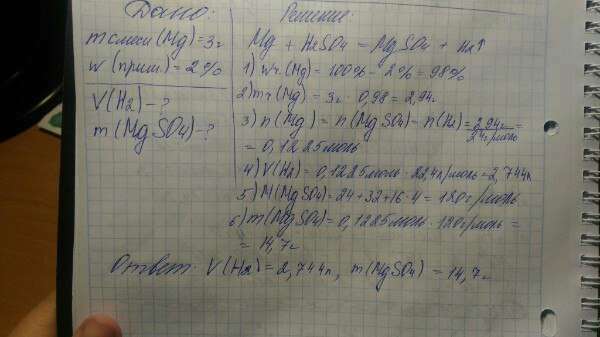 Дано:
m смеси (Mg) = 3г
w (прим.) = 2%
V(H2) - ?
m(MgSO4) - ?
Решение:
Mg + H2SO4 = MgSO4 + H2↑
1) wч.(Mg) = 100% - 2% = 98%
2) mч(Mg) = 3г · 0,98 = 2,94г
3) n(Mg) = n(MgSO4) = n(H2) = 2,94г / 24г/моль =
= 0,1225моль
4) V(H2) = 0,1225моль · 22,4л/моль = 2,744л
5) M(MgSO4) = 24 + 32 + 16 · 4 = 120г/моль
6) m(MgSO4) = 0,1225моль · 120г/моль =
= 14,7г
Ответ: V(H2) = 2,744л, m(MgSO4) = 14,7г